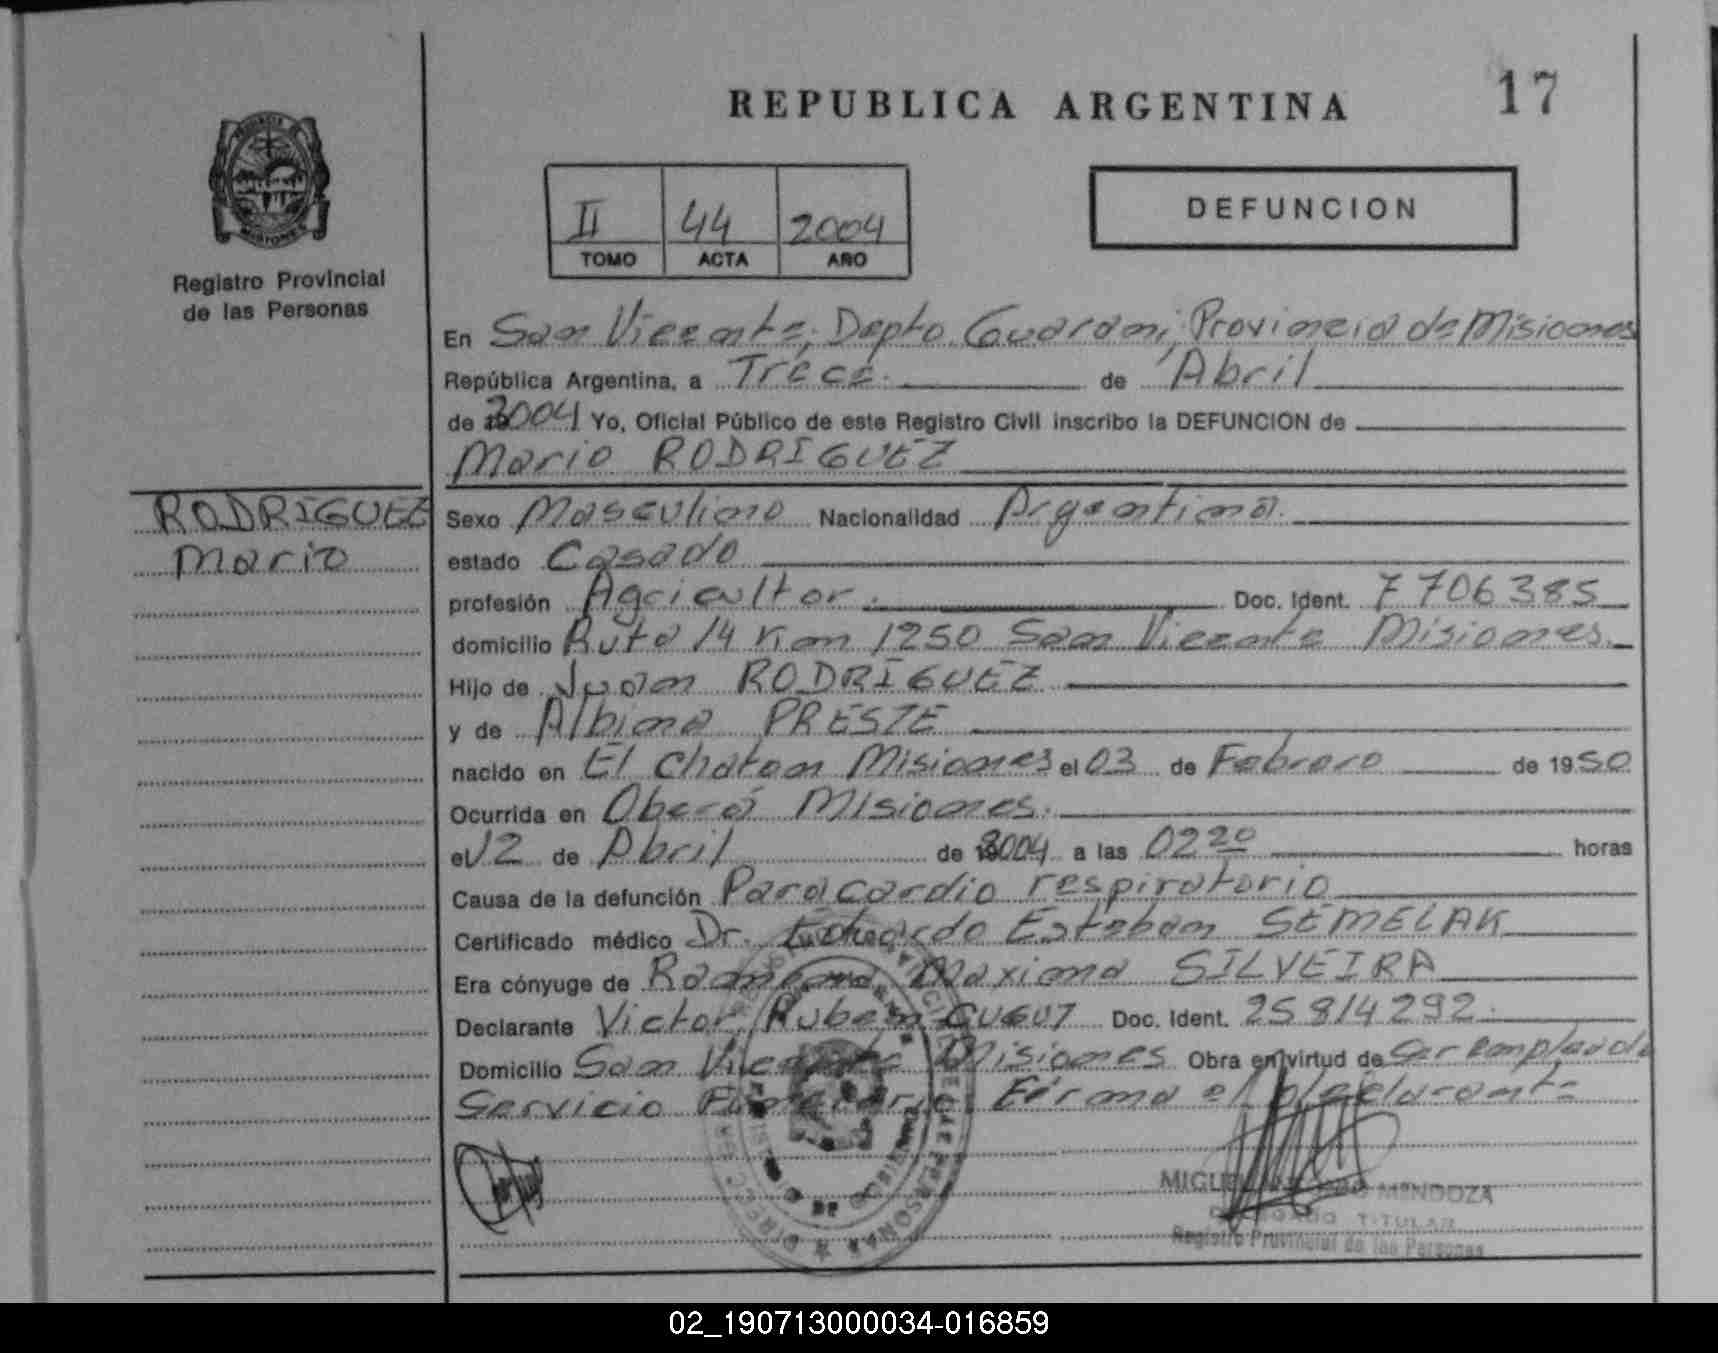 17
REPUBLICA ARGENTINA
PROVINCIA DE
MISIONES
Registro Provincial
de las Personas
II 44 2004
TOMO ACTA AÑO
DEFUNCION
En San Vicente, Depto. Guarani, Provincia de Misiones
República Argentina, a Trece de Abril
de 2004 Yo, Oficial Público de este Registro Civil inscribo la DEFUNCION de
Mario RODRIGUEZ
RODRIGUEZ
Mario
Sexo Masculino Nacionalidad Argentina.
estado Casado
profesión Agricultor. Doc. Ident. 7706385
domicilio Ruta 14 Km 1250 San Vicente Misiones.
Hijo de Juan RODRIGUEZ
y de Albina PRESTE
nacido en El Chaton Misiones el 03 de Febrero de 1950
Ocurrida en Oberá Misiones.
el 12 de Abril de 2004 a las 02 20 horas
Causa de la defunción Paracardio respiratorio
Certificado médico Dr. Eduardo Esteban SEMELAK
Era cónyuge de Ramona Maxima SILVEIRA
Declarante Victor Ruben Doc. Ident. 25814292.
Domicilio San Vicente Misiones Obra en virtud de Ser empleado
Servicio Funerario. Firma el declarante
MENDOZA
DELEGADO TITULAR
Registro Provincial de las Personas
02_190713000034-016859